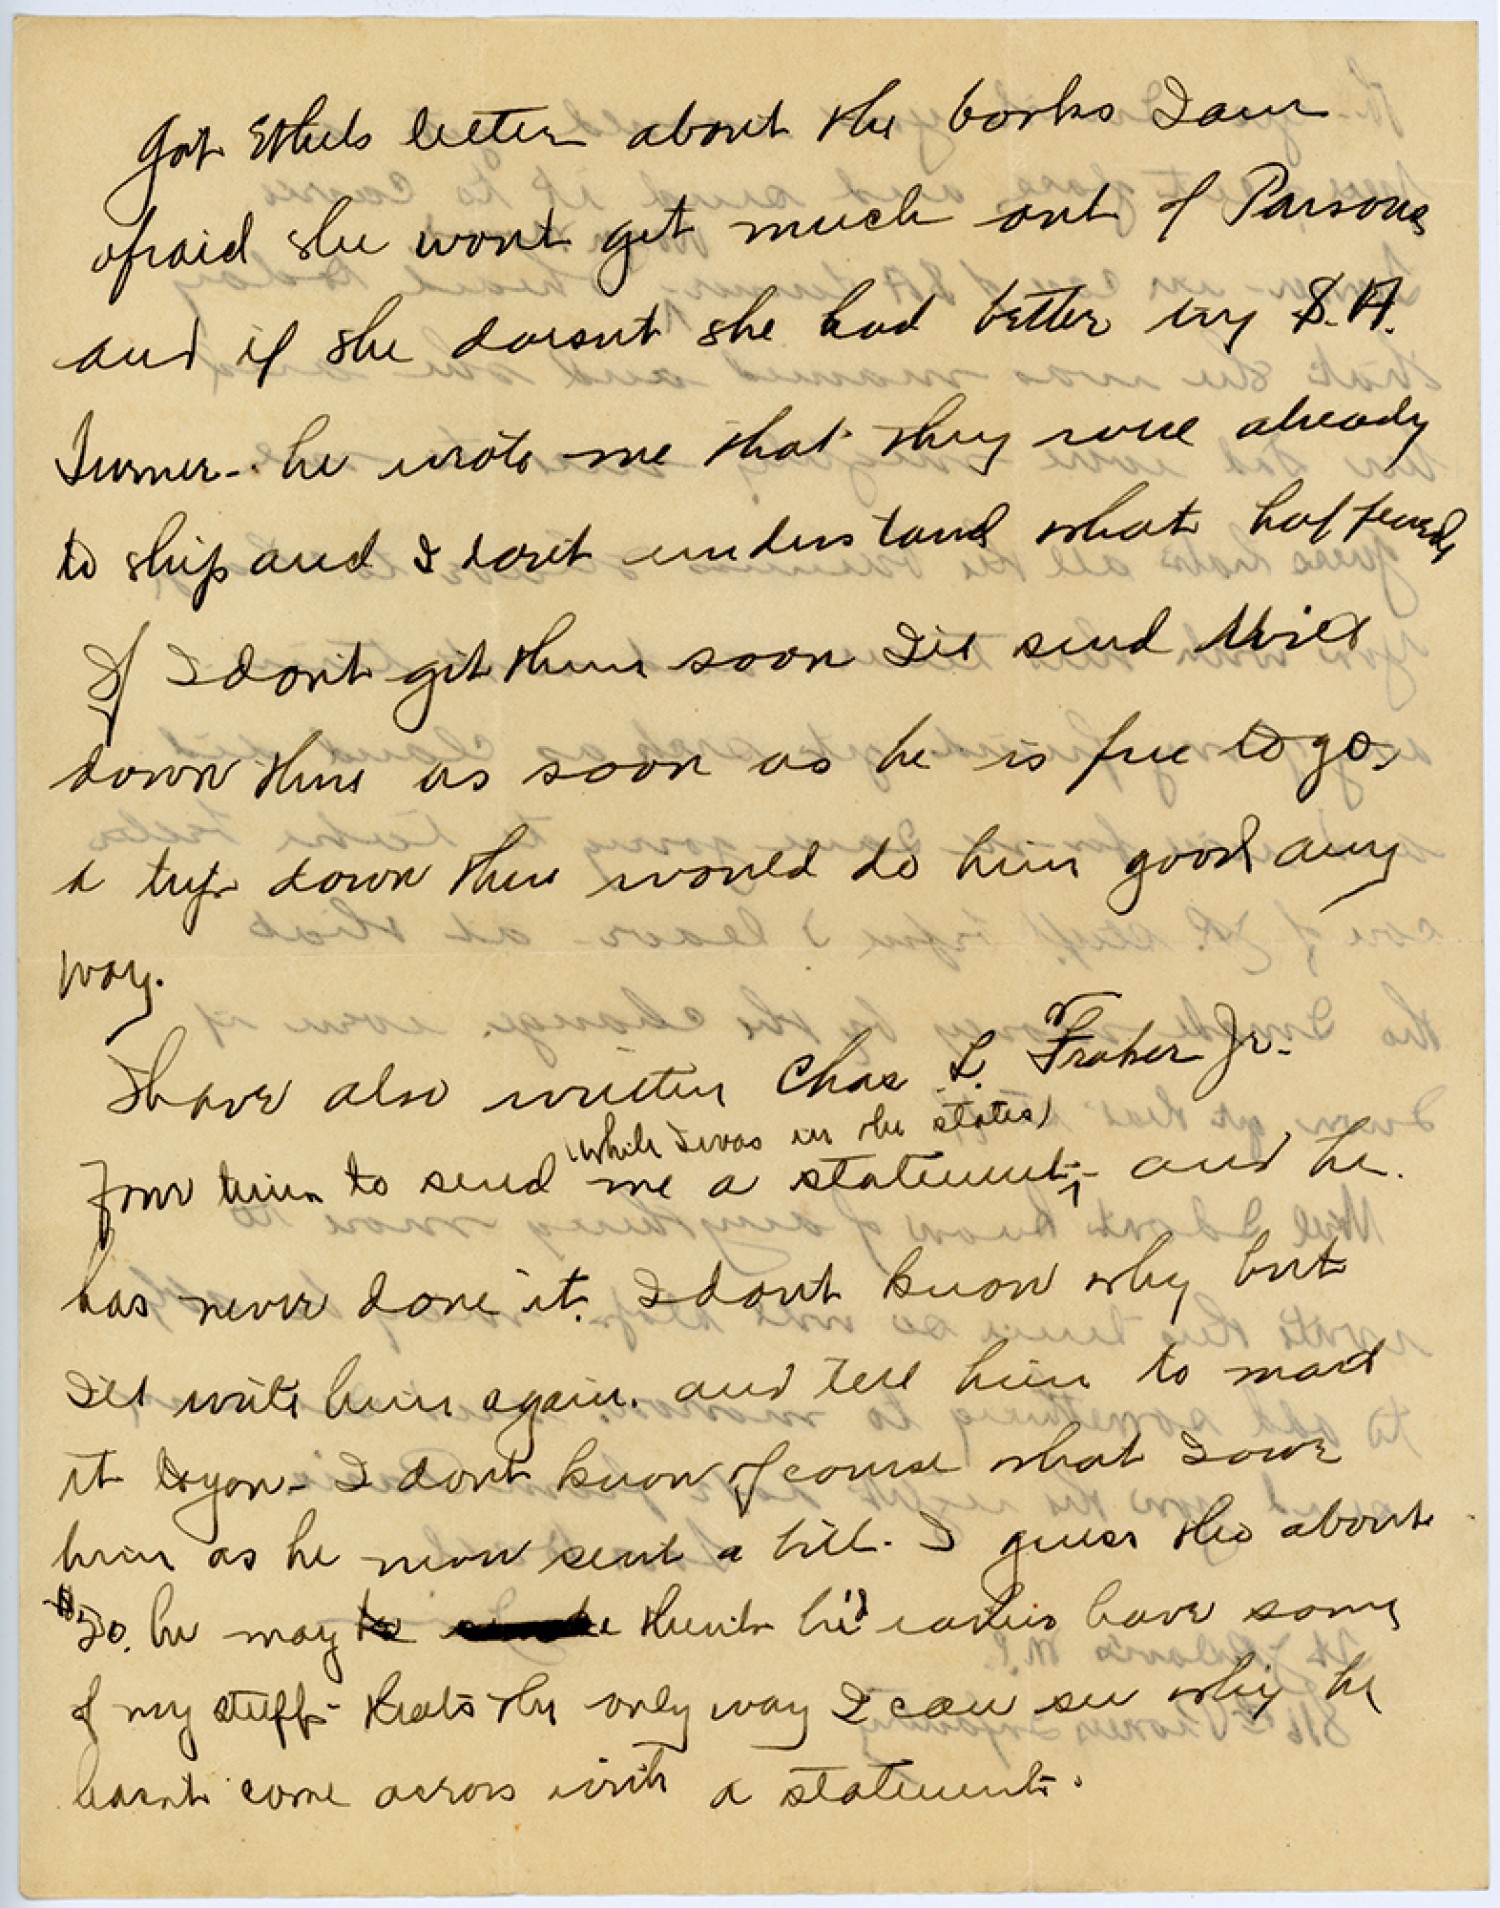 Got Ethels letter about the books I am
afraid she wont get much out of Parsons
and if she doesnt she had better try S.A.
Turner - he wrote me that they were already
to ship and I don't understand what happened,
If I don't get them soon I'll send
down there as soon as he is free to go,
a trip down there would do him good any
way.
I have also written Chas L. Fraker Jr.
(while I was in the states)
four times to send me a statement - and he
has never done it. I dont know why but
I'll write him again. and tell him to mail
it to you - I dont know of course what I owe
him as he never sent a bill. I guess tho about
$20. he may think he'd rather have some
of my stuff - that's the only way I can see why he
hasnt come across with a statement.